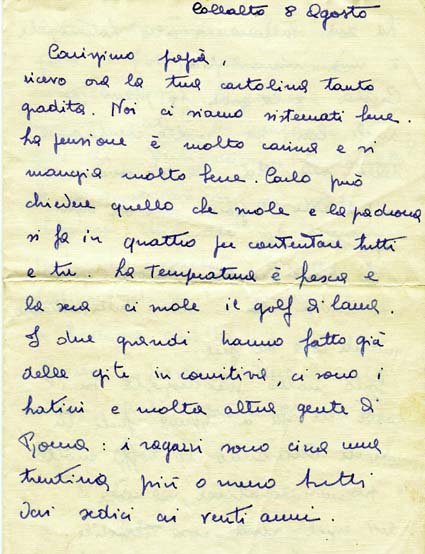 Collalto 8 Agosto
Carissimo papà,
ricevo ora la tua cartolina tanto
gradita. Noi ci siamo sistemati bene.
La pensione è molto carina e si
mangia molto bene. Carlo può
chiedere quello che vuole e la padrona
si fa in quattro per contentare tutti
e tre. La temperatura è fresca e
la sera ci vuole il golf di lana.
I due grandi hanno fatto già
delle gite in comitiva, ci sono i
e molta altra gente di
Roma: i ragazzi sono circa una
trentina più o meno tutti
dai sedici ai venti anni.